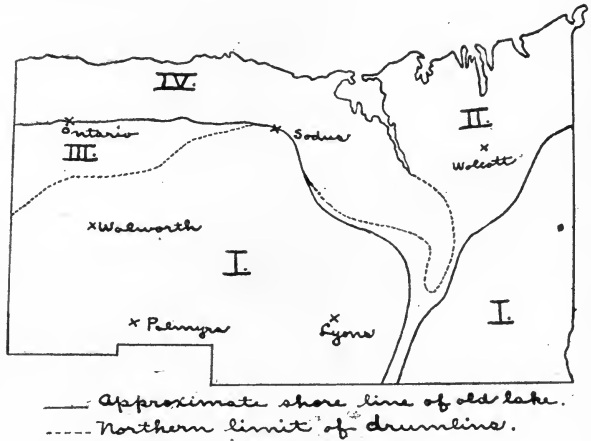 IV.
II.
Ontario
Sodus
III.
Wolcott
Walworth
I.
I.
Palmyra
Lyons
Approximate shore line of old lake.
Northern limit of drumlins.